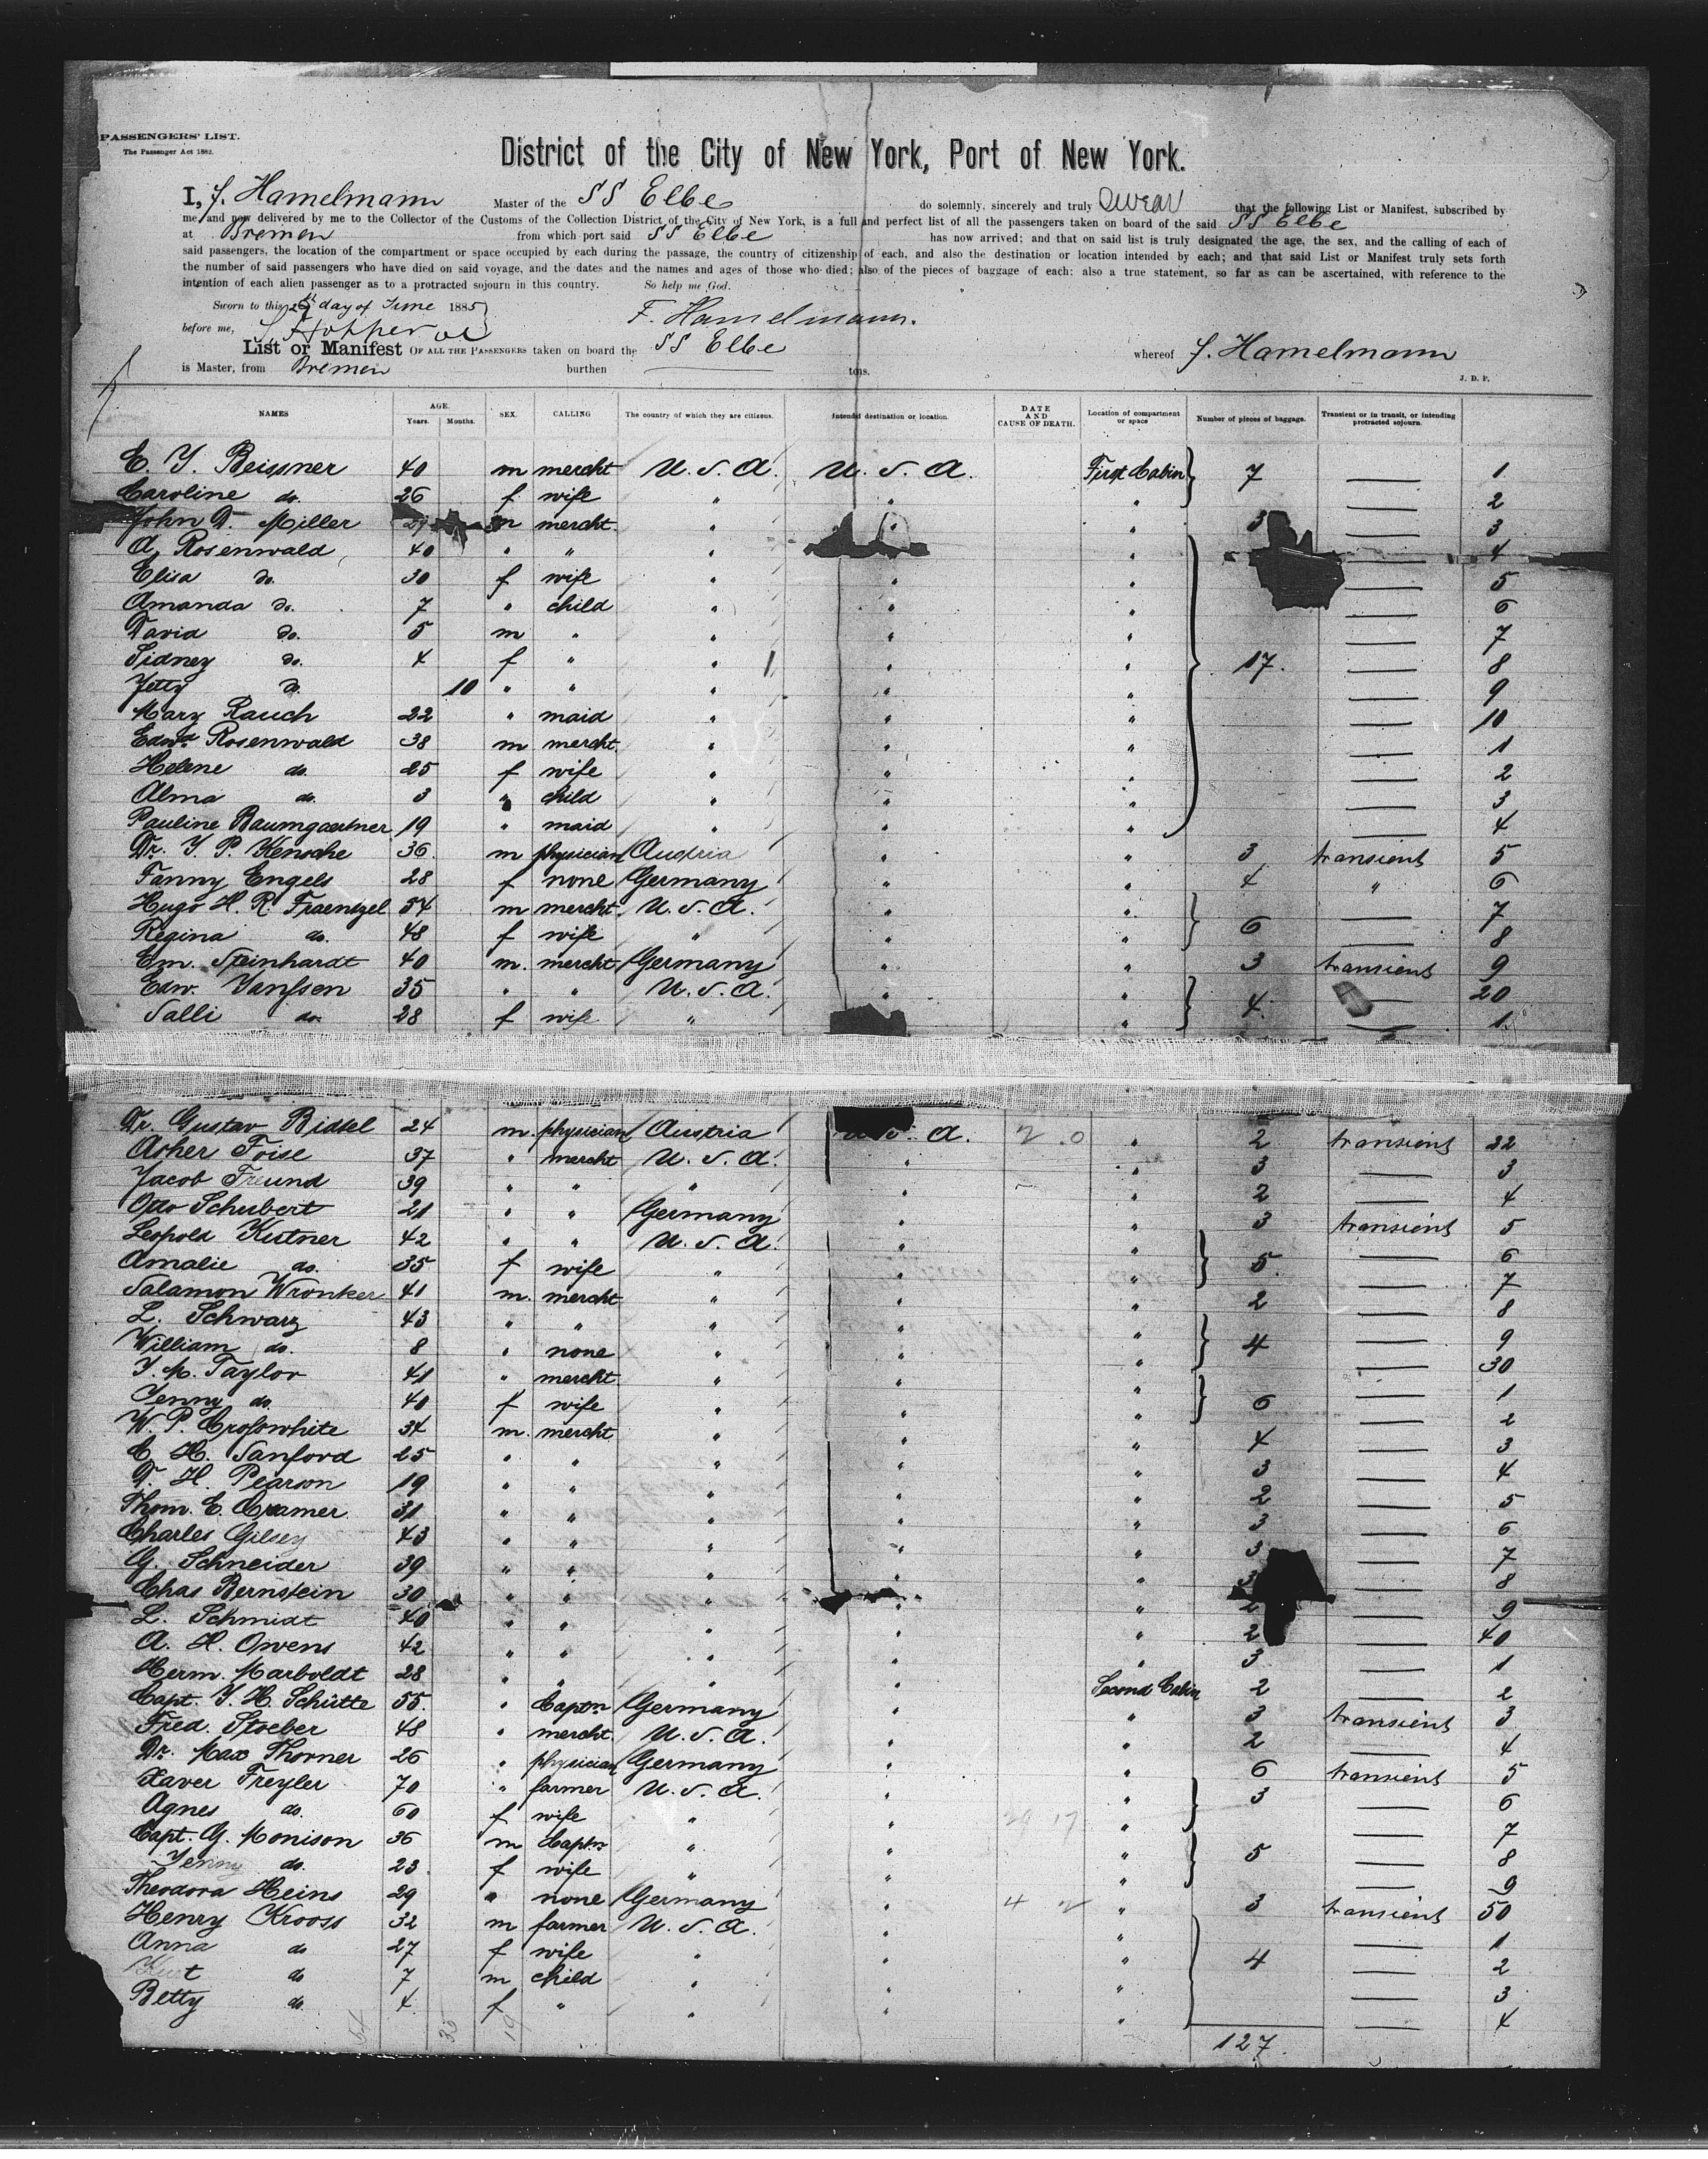 PASSENGERS' LIST.
The Passenger Act 1882.
District of the City of New York, Port of New York.
I, F. Hamelmann Master of the SS Elbe do solemnly, sincerely and truly swear that the following List or Manifest, subscribed by
me, and now delivered by me to the Collector of the Customs of the Collection District of the City of New York, is a full and perfect list of all the passengers taken on board of the said SS Elbe
at Bremen from which port said SS Elbe has now arrived; and that on said list is truly designated the age, the sex, and the calling of each of
said passengers, the location of the compartment or space occupied by each during the passage, the country of citizenship of each, and also the destination or location intended by each; and that said List or Manifest truly sets forth
the number of said passengers who have died on said voyage, and the dates and the names and ages of those who died; also of the pieces of baggage of each: also a true statement, so far as can be ascertained, with reference to the
intention of each alien passenger as to a protracted sojourn in this country. So help me God.
Sworn to this day of June 1885
before me, F. Hamelmann.
List or Manifest OF ALL THE PASSENGERS taken on board the SS Elbe whereof F. Hamelmann
is Master, from Bremen burthen tons.
J. D. P.
NAMES AGE. Years. Months. SEX. CALLING The country of which they are citizens. Intended destination or location. DATE AND CAUSE OF DEATH. Location of compartment or space Number of pieces of baggage. Transient or in transit, or intending protracted sojourn.
E. J. Beissner 40 m mercht U.S.A. U.S.A. First Cabin 7 — 1
Caroline do. 26 f wife " " " — 2
John D. Miller m mercht. " " " 3 — 3
A. Rosenwald 40 " " " " " — 4
Elisa do. 30 f wife " " " — 5
Amanda do. 7 " child " " " — 6
David do. 5 m " " " " — 7
Sidney do. 4 f " " " " 17. — 8
Jetty do. 10 " " " " " — 9
Mary Rauch 22 " maid " " " — 10
Edwd. Rosenwald 38 m mercht. " " " — 1
Helene do. 25 f wife " " " — 2
Alma do. 3 " child " " " — 3
Pauline Baumgaertner 19 " maid " " " — 4
Dr. J. P. Kensche 36 m physician Austria " " 3 transient 5
Fanny Engels 28 f none Germany " " 4 " 6
Hugo H. R. Fraentzel 54 m mercht. U.S.A. " " 6 — 7
Regina do. 48 f wife " " " — 8
Em. Steinhardt 40 m. mercht Germany " " 3 transient 9
Edw. Janssen 35 " " U.S.A. " " 4. — 20
Salli do. 28 f wife " " — 1
Dr. Gustav Bidtel 24 m. physician Austria A. " 2 transient 22
Asher Foise 37 " mercht U.S.A. " " 3 — 3
Jacob Freund 39 " " " " " 2 — 4
Otto Schubert 21 " " Germany " " 3 transient 5
Leopold Kutner 42 " " U.S.A. " " 5. — 6
Amalie do. 35 f wife " " " — 7
Salamon Wronker 41 m. mercht " " " 2 — 8
L. Schwarz 43 " " " " " 4 — 9
William do. 8 " none " " " — 30
J. M. Taylor 41 " mercht. " " " 6 — 1
Jenny do. 40 f wife " " " — 2
W. P. Crosswhite 34 m. mercht " " " 4 — 3
C. H. Sanford 25 " " " " " 3 — 4
D. H. Pearson 19 " " " " " 2 — 5
Thom. E. Cramer 31 " " " " " 3 — 6
Charles Gilsey 43 " " " " " 3 — 7
G. Schneider 39 " " " " " 3 — 8
Chas Bernstein 30 " " " " " 2 — 9
L. Schmidt 40 " " " " " 2 — 40
A. H. Owens 42 " " " " " 3 — 1
Herm. Marboldt 28 " " " " Second Cabin 2 — 2
Capt. J. H. Schütte 55. " Captn Germany " " 3 transient 3
Fred. Stoeber 48 " mercht. U.S.A. " " 2 — 4
Dr. Max Thorner 26 " physician Germany " " 6 transient 5
Xaver Freyler 70 " farmer U.S.A. " " 3 — 6
Agnes do. 60 f wife " " " — 7
Capt. G. Monison 36 m Captn " " " 5 — 8
Jenny do. 23. f wife " " " — 9
Theodora Heins 29 " none Germany " " 3 transient 50
Henry Krooss 32 m farmer U.S.A. " " 4 — 1
Anna do 27 f wife " " " — 2
do 7 m child " " " — 3
Betty do. 4 f " " " " — 4
127.